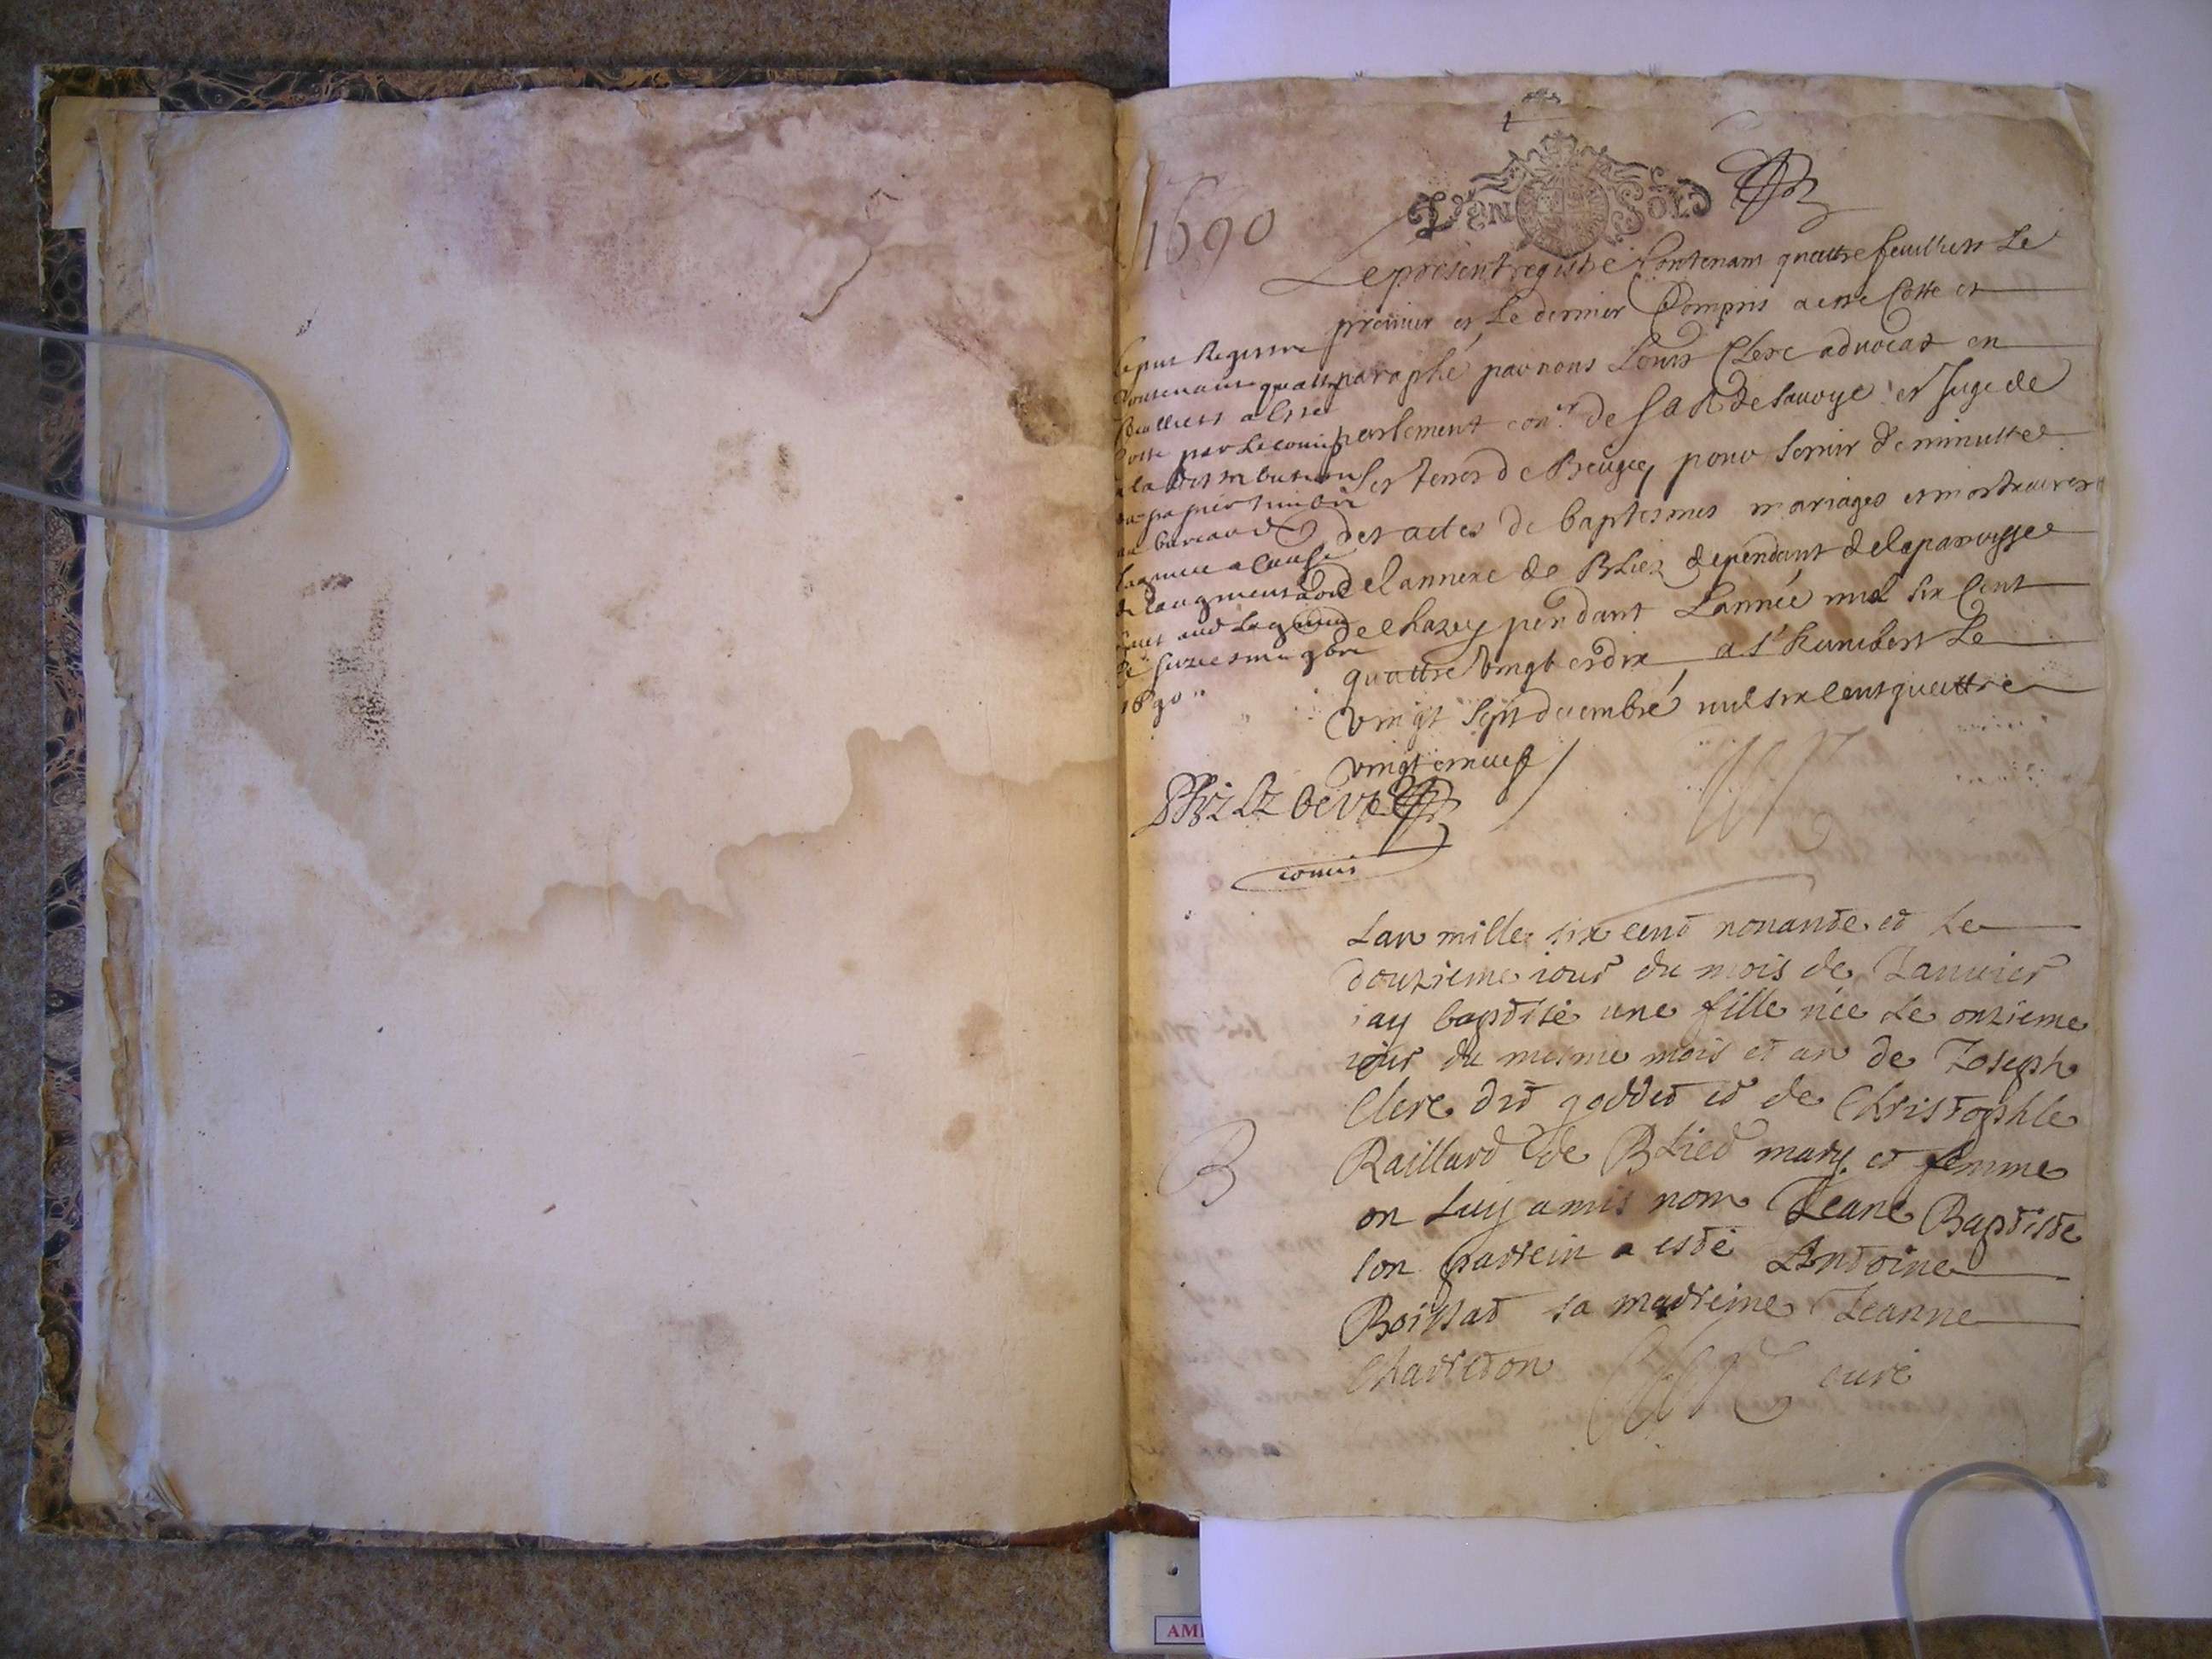 1690
Le present registre Contenant quattre feuillets Le
premier et Le dernier Compris a esté Cotté et
paraphé par nous Louis Clerc advocat en
parlement con.er de S A R de Savoye et Juge de
ses terres de Breugey pour servir de minuttes
des actes de baptesmes mariages et mortuaires
de lannexe de Bliez dependant de la parroysse
de Chazey pendant Lannée mil six Cent
quattre vingt et dix a St Rambert Le
vingt sept decembre mil six cent quattre
vingt et neuf
Le pnt Registre
Contenant quattre
feuillets a esté
Cotté par le comis
a la distribution
du papier timbré
au bureau de
Lagnieu a Cause
de laugmentaon
fait aud Lagnieu
1690
comis
Lan mille six cent nonante et Le
douzieme iour du mois de Ianvier
iay baptisé une fille née Le onzieme
iour du mesme mois et an de Ioseph
Clerc dit goddet et de Christophle
Raillard de BLied mary et femme
on Luy a mis nom Ieane Baptiste
son parrein a esté Antoine
Boissat sa marreine Ieanne
Charreton curé
B